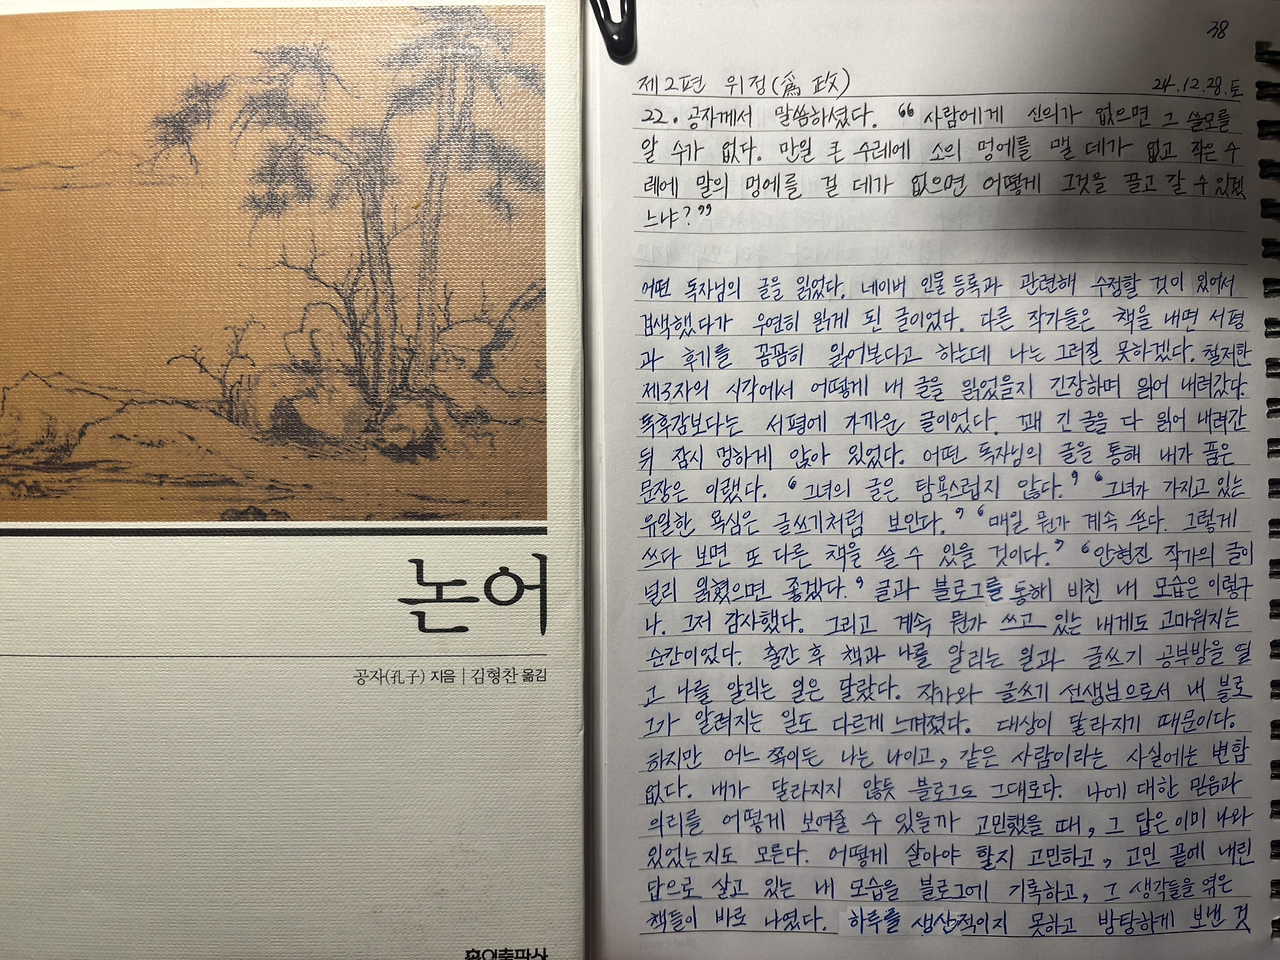 논어
공자(孔子) 지음 | 김형찬 옮김
홍익출판사
38
제2편 위정(爲政) 24.12.28.토
22. 공자께서 말씀하셨다. "사람에게 신의가 없으면 그 쓸모를
알 수가 없다. 만일 큰 수레에 소의 멍에를 맬 데가 없고 작은 수
레에 말의 멍에를 걸 데가 없으면 어떻게 그것을 끌고 갈 수 있겠
느냐?"
어떤 독자님의 글을 읽었다. 네이버 인물 등록과 관련해 수정할 것이 있어서
검색했다가 우연히 읽게 된 글이었다. 다른 작가들은 책을 내면 서평
과 후기를 꼼꼼히 읽어본다고 하는데 나는 그러질 못하겠다. 철저한
제3자의 시각에서 어떻게 내 글을 읽었을지 긴장하며 읽어 내려갔다.
독후감보다는 서평에 가까운 글이었다. 꽤 긴 글을 다 읽어 내려간
뒤 잠시 멍하게 앉아 있었다. 어떤 독자님의 글을 통해 내가 품은
문장은 이랬다. '그녀의 글은 탐욕스럽지 않다.' '그녀가 가지고 있는
유일한 욕심은 글쓰기처럼 보인다.' '매일 뭔가 계속 쓴다. 그렇게
쓰다 보면 또 다른 책을 쓸 수 있을 것이다.' '안현진 작가의 글이
널리 읽혔으면 좋겠다.' 글과 블로그를 통해 비친 내 모습은 이렇구
나. 그저 감사했다. 그리고 계속 뭔가 쓰고 있는 내게도 고마워지는
순간이었다. 출간 후 책과 나를 알리는 일과 글쓰기 공부방을 열
고 나를 알리는 일은 달랐다. 작가와 글쓰기 선생님으로서 내 블로
그가 알려지는 일도 다르게 느껴졌다. 대상이 달라지기 때문이다.
하지만 어느 쪽이든 나는 나이고, 같은 사람이라는 사실에는 변함
없다. 내가 달라지지 않듯 블로그도 그대로다. 나에 대한 믿음과
의리를 어떻게 보여줄 수 있을까 고민했을 때, 그 답은 이미 나와
있었는지도 모른다. 어떻게 살아야 할지 고민하고, 고민 끝에 내린
답으로 살고 있는 내 모습을 블로그에 기록하고, 그 생각들을 엮은
책들이 바로 나였다. 하루를 생산적이지 못하고 방탕하게 보낸 것